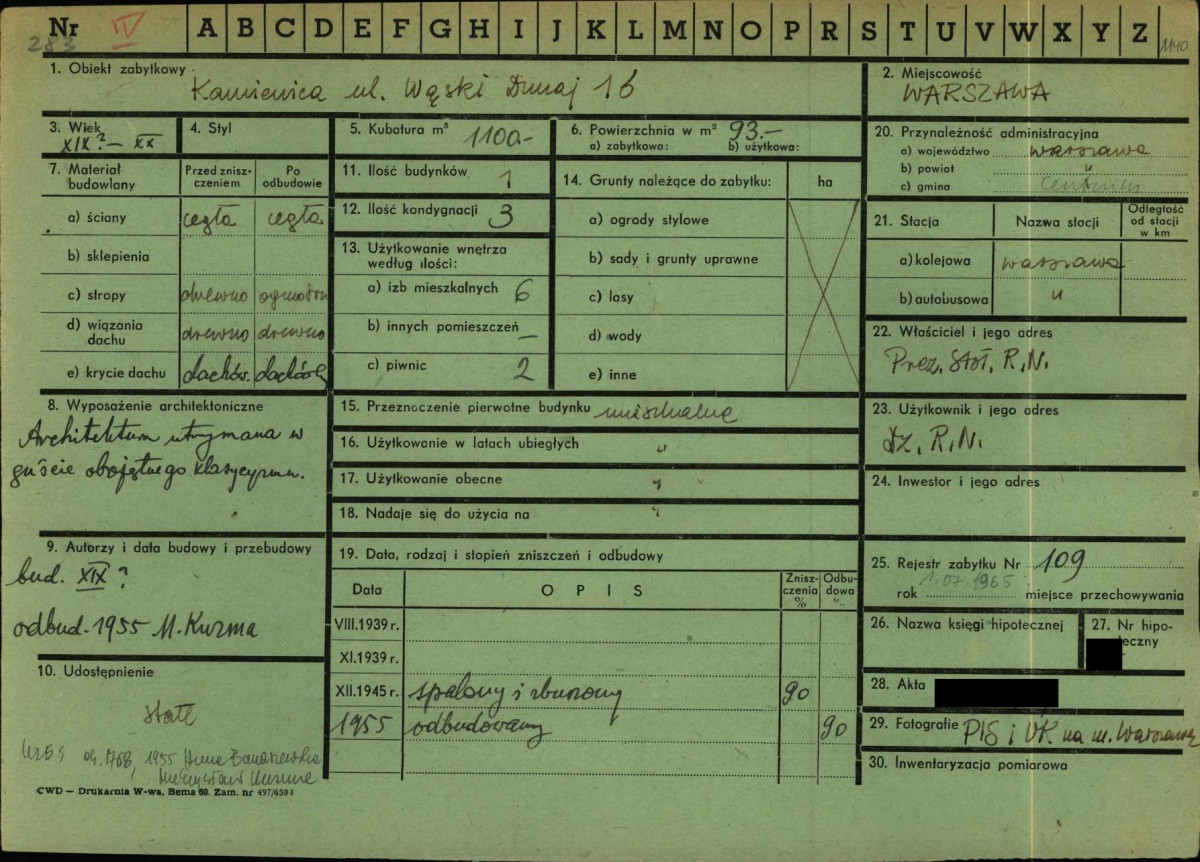 Nr IV A B C D E F G H I J K L M N O P R S T U V W X Y Z
283
1140
1. Obiekt zabytkowy
Kamienica ul. Wąski Dunaj 16
2. Miejscowość
WARSZAWA
3. Wiek
XIX? – XX
4. Styl
5. Kubatura m³ 1100.-
6. Powierzchnia w m² 93.-
a) zabytkowa: b) użytkowa:
20. Przynależność administracyjna
a) województwo warszawa
b) powiat "
c) gmina Centrum
7. Materiał budowlany
Przed zniszczeniem
Po odbudowie
a) ściany cegła cegła
b) sklepienia
c) stropy drewno ogniotrw
d) wiązania dachu drewno drewno
e) krycie dachu dachów. dachówka
11. Ilość budynków 1
12. Ilość kondygnacji 3
13. Użytkowanie wnętrza
według ilości:
a) izb mieszkalnych 6
b) innych pomieszczeń –
c) piwnic 2
14. Grunty należące do zabytku: ha
a) ogrody stylowe
b) sady i grunty uprawne
c) lasy
d) wody
e) inne
21. Stacja Nazwa stacji Odległość od stacji w km
a) kolejowa warszawa
b) autobusowa "
22. Właściciel i jego adres
Prez. Stoł. R.N.
8. Wyposażenie architektoniczne
Architektura utrzymana w
guście obojętnego klasycyzmu.
15. Przeznaczenie pierwotne budynku mieszkalne
16. Użytkowanie w latach ubiegłych "
17. Użytkowanie obecne "
18. Nadaje się do użycia na "
23. Użytkownik i jego adres
Dz. R.N.
24. Inwestor i jego adres
9. Autorzy i data budowy i przebudowy
bud. XIX?
odbud. 1955 M. Kuzma
19. Data, rodzaj i stopień zniszczeń i odbudowy
Data O P I S Zniszczenia % Odbudowa %
VIII.1939 r.
XI.1939 r.
XII.1945 r. spalony i zburzony 90
1955 odbudowany 90
25. Rejestr zabytku Nr 109
1.07.1965
rok miejsce przechowywania
26. Nazwa księgi hipotecznej
27. Nr hipoteczny
28. Akta
29. Fotografie PIS i UK na m. Warszawę
30. Inwentaryzacja pomiarowa
10. Udostępnienie
1768, 1955 Anna
CWD — Drukarnia W-wa, Bema 60. Zam. nr 497/6500